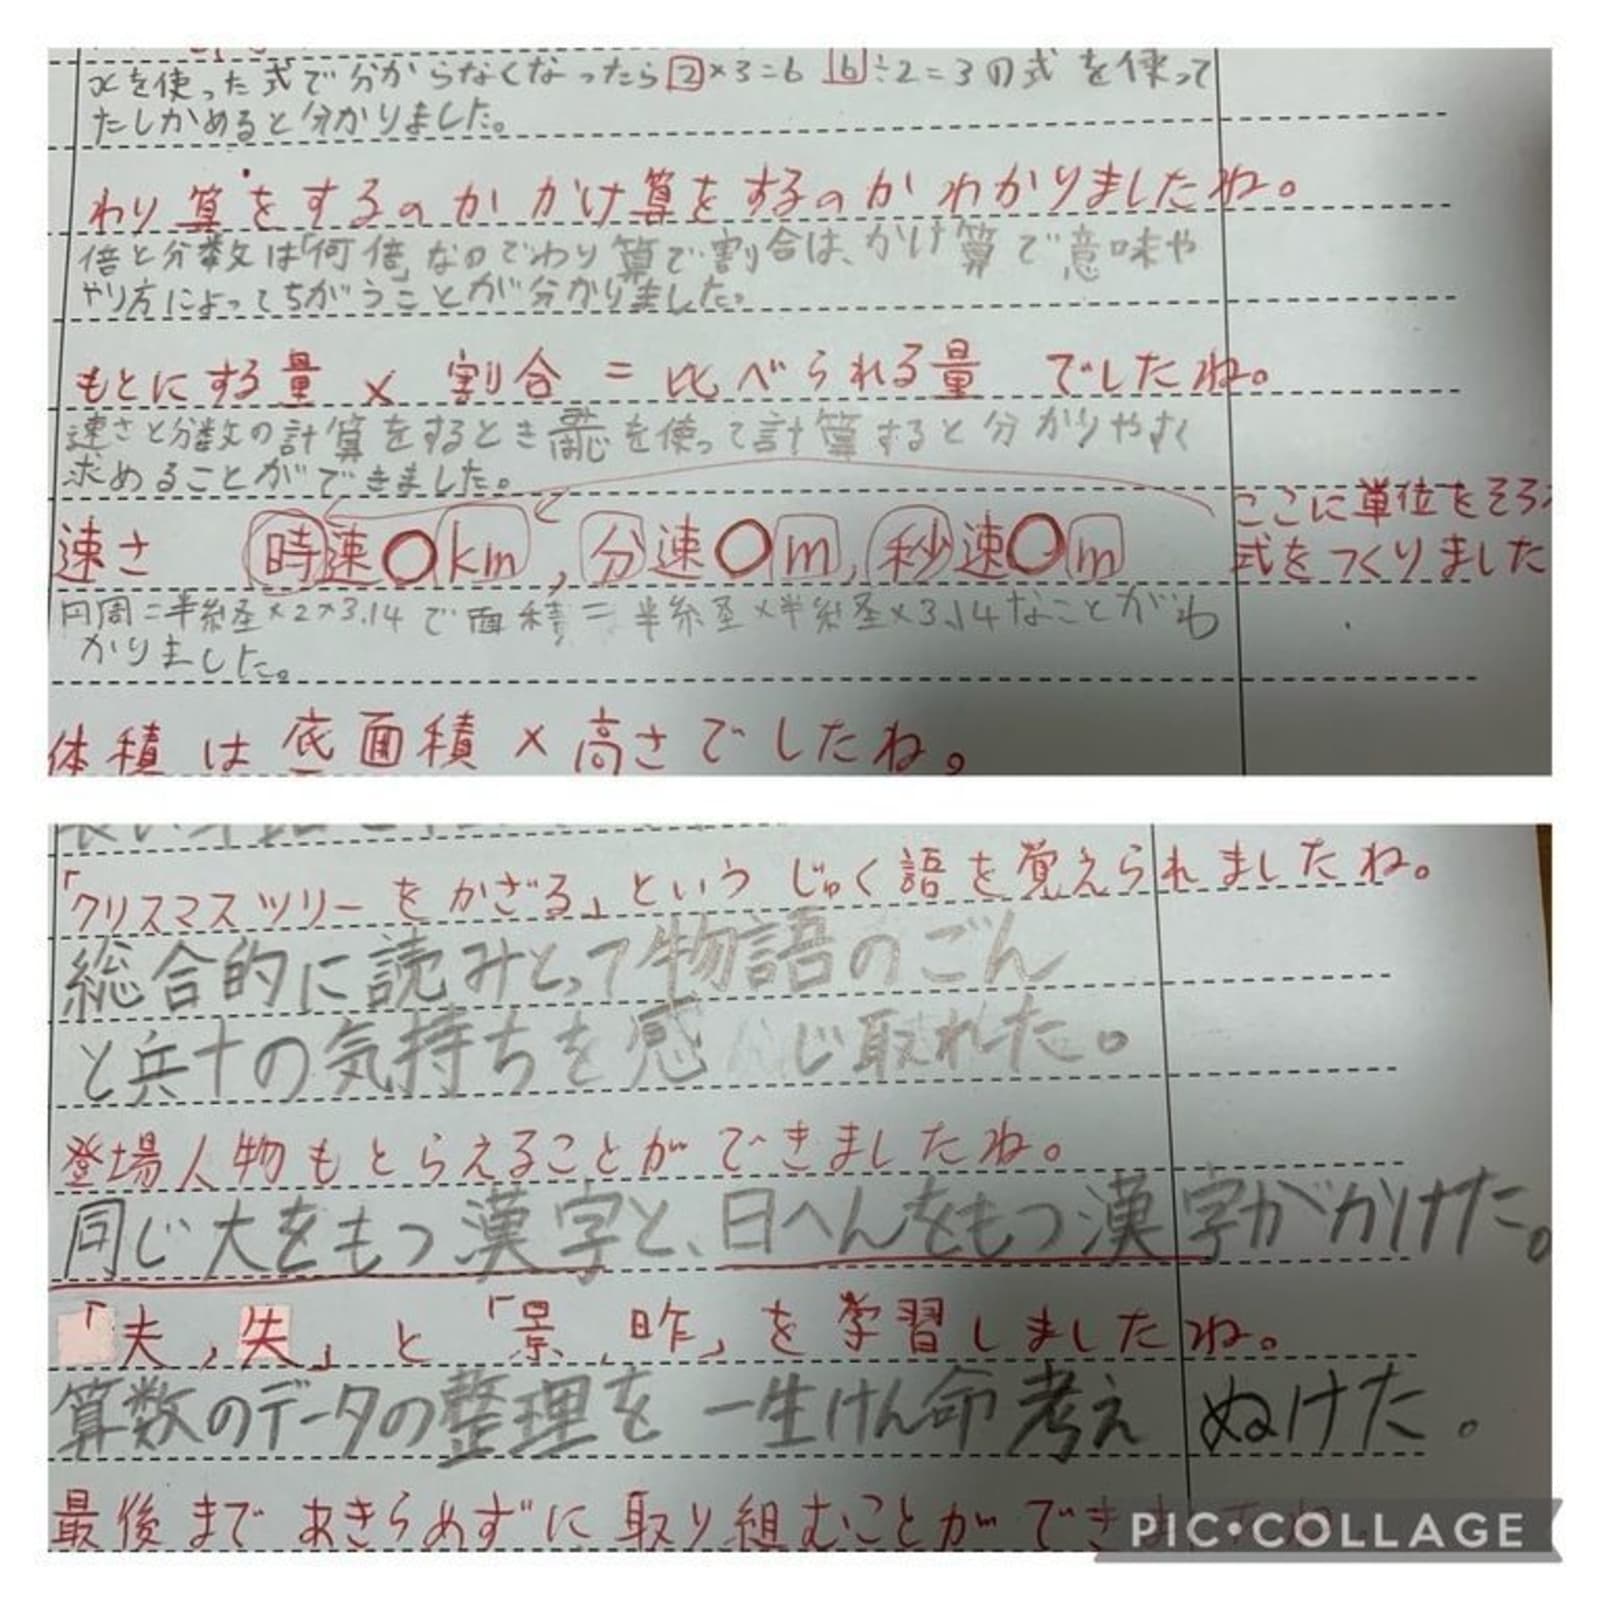 xを使った式で分からなくなったら2×3=6 6÷2=3の式を使って
たしかめると分かりました。
わり算をするのかかけ算をするのかわかりましたね。
倍と分数は「何倍」なのでわり算で割合は、かけ算で意味や
やり方によってちがうことが分かりました。
もとにする量×割合=比べられる量 でしたね。
速さと分数の計算をするとき を使って計算すると分かりやすく
求めることができました。
ここに単位をそろ
速さ 時速〇km, 分速〇m, 秒速〇m
式をつくりました
円周=半径×2×3.14で面積=半径×半径×3.14なことがわ
かりました。
体積は底面積×高さでしたね。
「クリスマスツリーをかざる」というじゅく語を覚えられましたね。
総合的に読みとって物語のごん
と兵十の気持ちを感じ取れた。
登場人物もとらえることができましたね。
同じ大をもつ漢字と、日へんをもつ漢字がかけた。
「夫,失」と「景,昨」を学習しましたね。
算数のデータの整理を一生けん命考えぬけた。
最後まであきらめずに取り組むことができ
PIC•COLLAGE